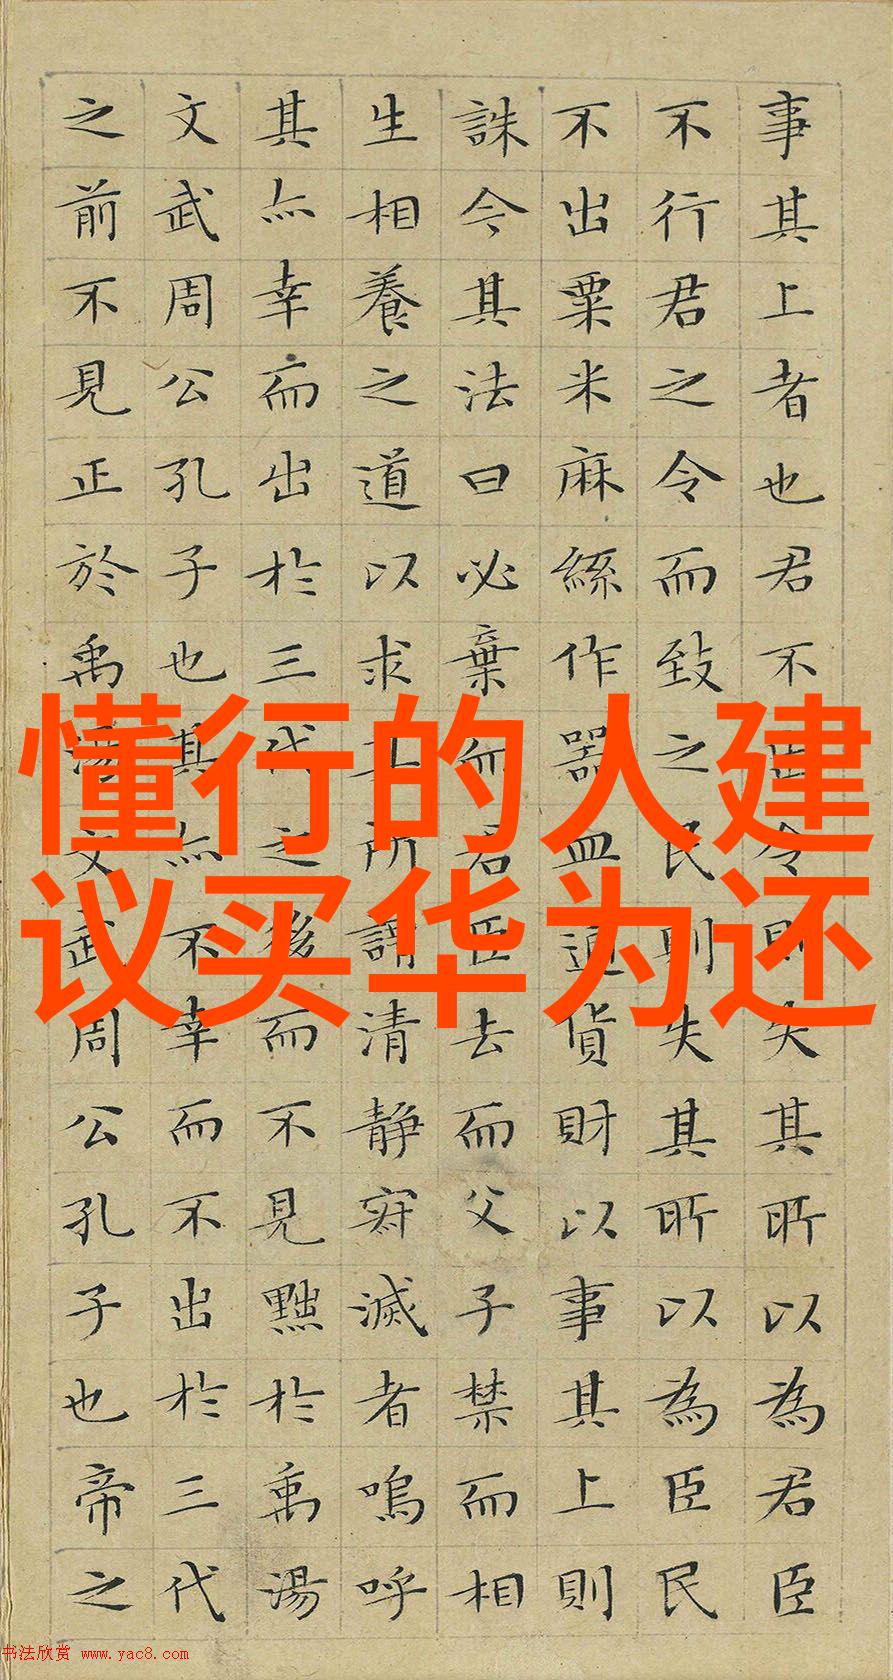 事其上者也君不出令則失其所以為君臣
不行君之令而致之民則失其所以為臣民
不出粟米麻絲作器皿通貨財以事其上則
誅今其法曰必棄而君臣去而父子禁而相
生相養之道以求其所謂清静寂滅者嗚呼
其亦幸而出於三代之後而不見黜於禹湯
文武周公孔子也其亦不幸而不出於三代
之前不見正於禹湯文武周公孔子也帝之
懂行的人建
议买华为还
书法欣赏 www.yac8.com